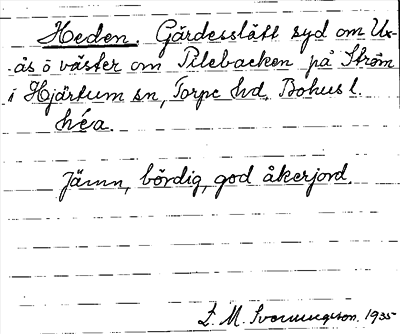 Heden. Gärdesslätt syd om Ux-
ås o väster om Pilebacken på Ström
i Hjärtum sn, Torpe hd, Bohusl.
héa.
Jämn, bördig, god åkerjord.
E. M. Svenungsson. 1935